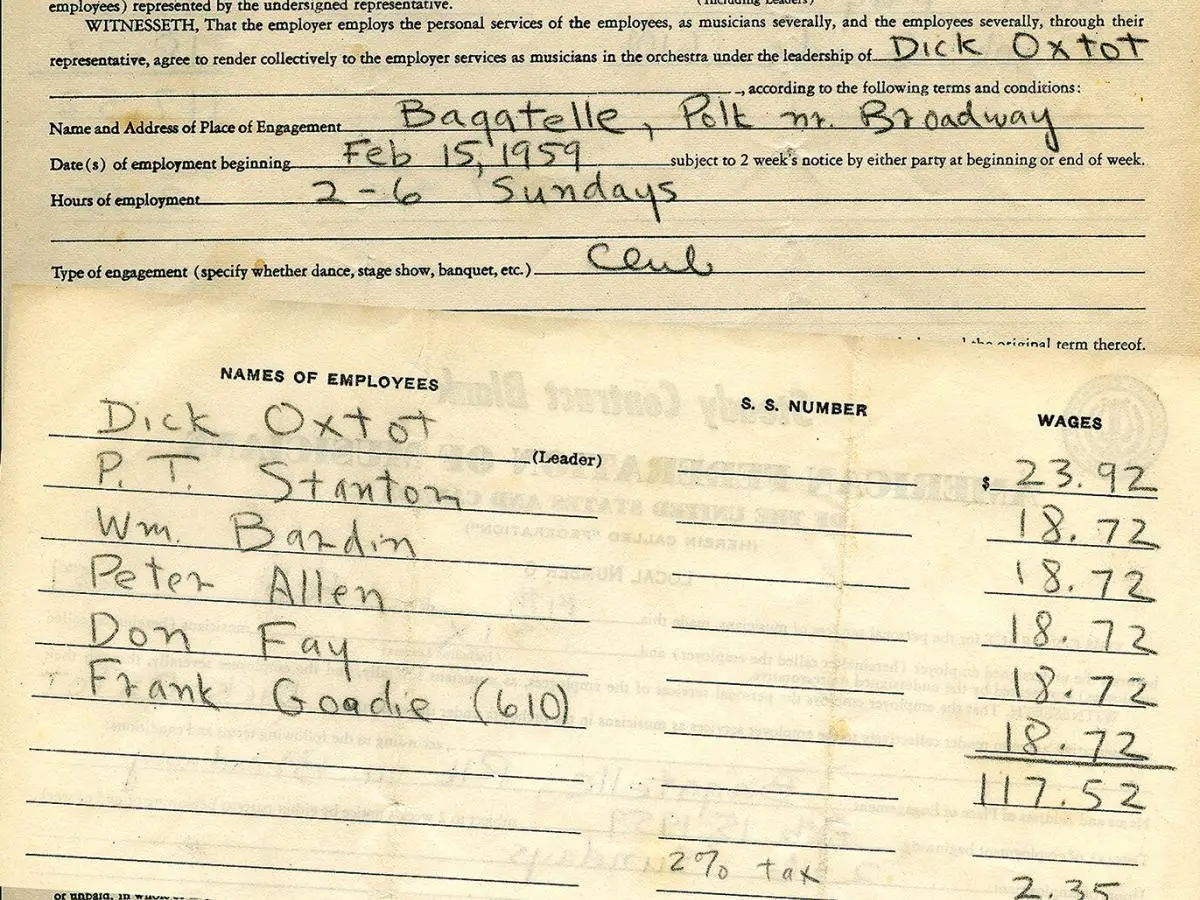 employees) represented by the undersigned representative. (Including Leaders)
WITNESSETH, That the employer employs the personal services of the employees, as musicians severally, and the employees severally, through their
representative, agree to render collectively to the employer services as musicians in the orchestra under the leadership of Dick Oxtot
, according to the following terms and conditions:
Name and Address of Place of Engagement Bagatelle, Polk nr. Broadway
Date(s) of employment beginning Feb 15, 1959 subject to 2 week's notice by either party at beginning or end of week.
Hours of employment 2-6 Sundays
Type of engagement (specify whether dance, stage show, banquet, etc.) Club
the original term thereof.
NAMES OF EMPLOYEES S. S. NUMBER WAGES
Dick Oxtot (Leader) $ 23.92
P. T. Stanton 18.72
Wm. Bardin 18.72
Peter Allen 18.72
Don Fay 18.72
Frank Goadie (610) 18.72
117.52
2% tax 2.35
or unpaid, in whole or